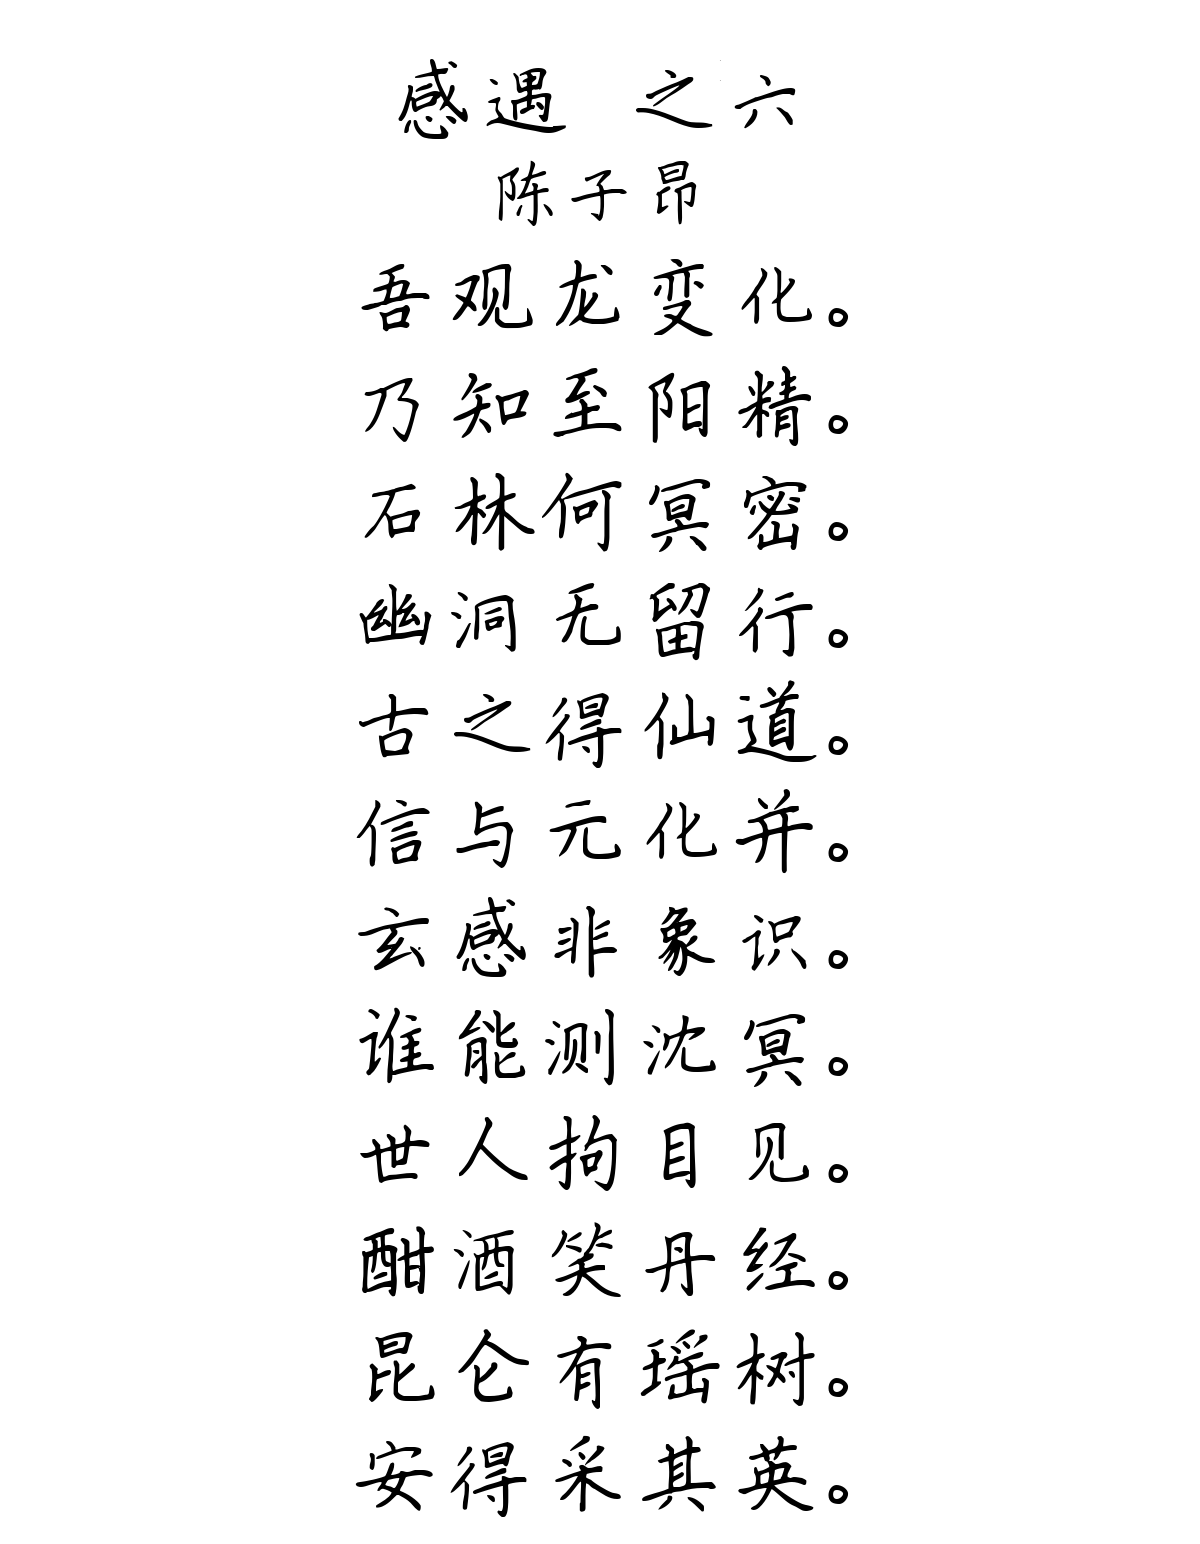 感遇 之六
陈子昂
吾观龙变化。
乃知至阳精。
石林何冥密。
幽洞无留行。
古之得仙道。
信与元化并。
玄感非象识。
谁能测沈冥。
世人拘目见。
酣酒笑丹经。
昆仑有瑶树。
安得采其英。